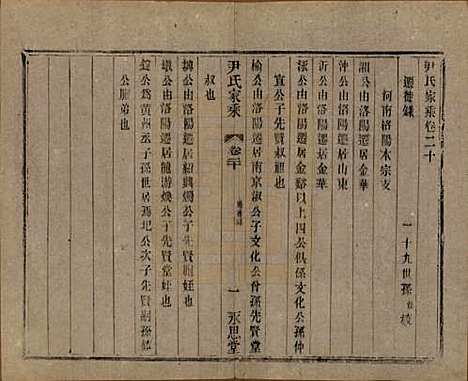 尹氏家乘卷二十
遷徙錄 一十九世孫
河南洛陽木宗支
湘公由洛陽遷居金華
沖公由洛陽遷居山東
沂公由洛陽遷居金華
泓公由洛陽遷居金谿以上四公俱係文化公孫仲
宣公子先賢叔祖也
榆公由洛陽遷居南京淑公子文化公仲孫先賢堂
叔也
尹氏家乘 卷二十 一 永思堂
公由洛陽遷居 公子先賢 姪也
公由洛陽遷居龍游煥公子先賢堂姪也
公爲黃州丞子孫世居 公次子先賢嗣孫
公胞弟也